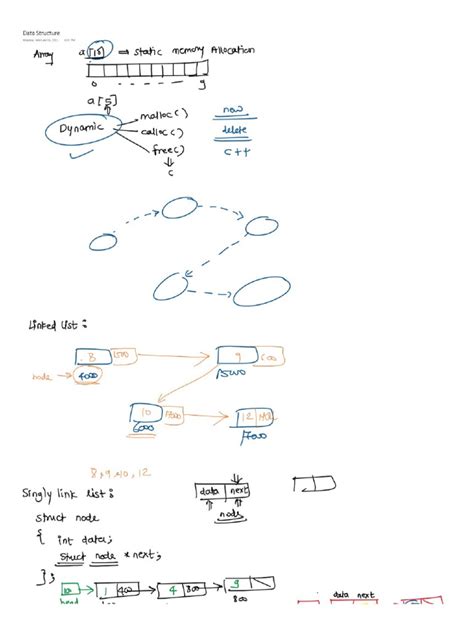 Data Structure
Array a[10] ⇒ static memory Allocation
0 9
a[5]
Dynamic
malloc()
calloc()
free()
c
new
delete
c++
Linked List :
8 1500
9
node → 4000
1500
10
12
6000
7000
8, 9, 10, 12
Singly link list :
data next
node
struct node
{ int data;
struct node *next;
};
1 400
4 800
9
800
head
data next